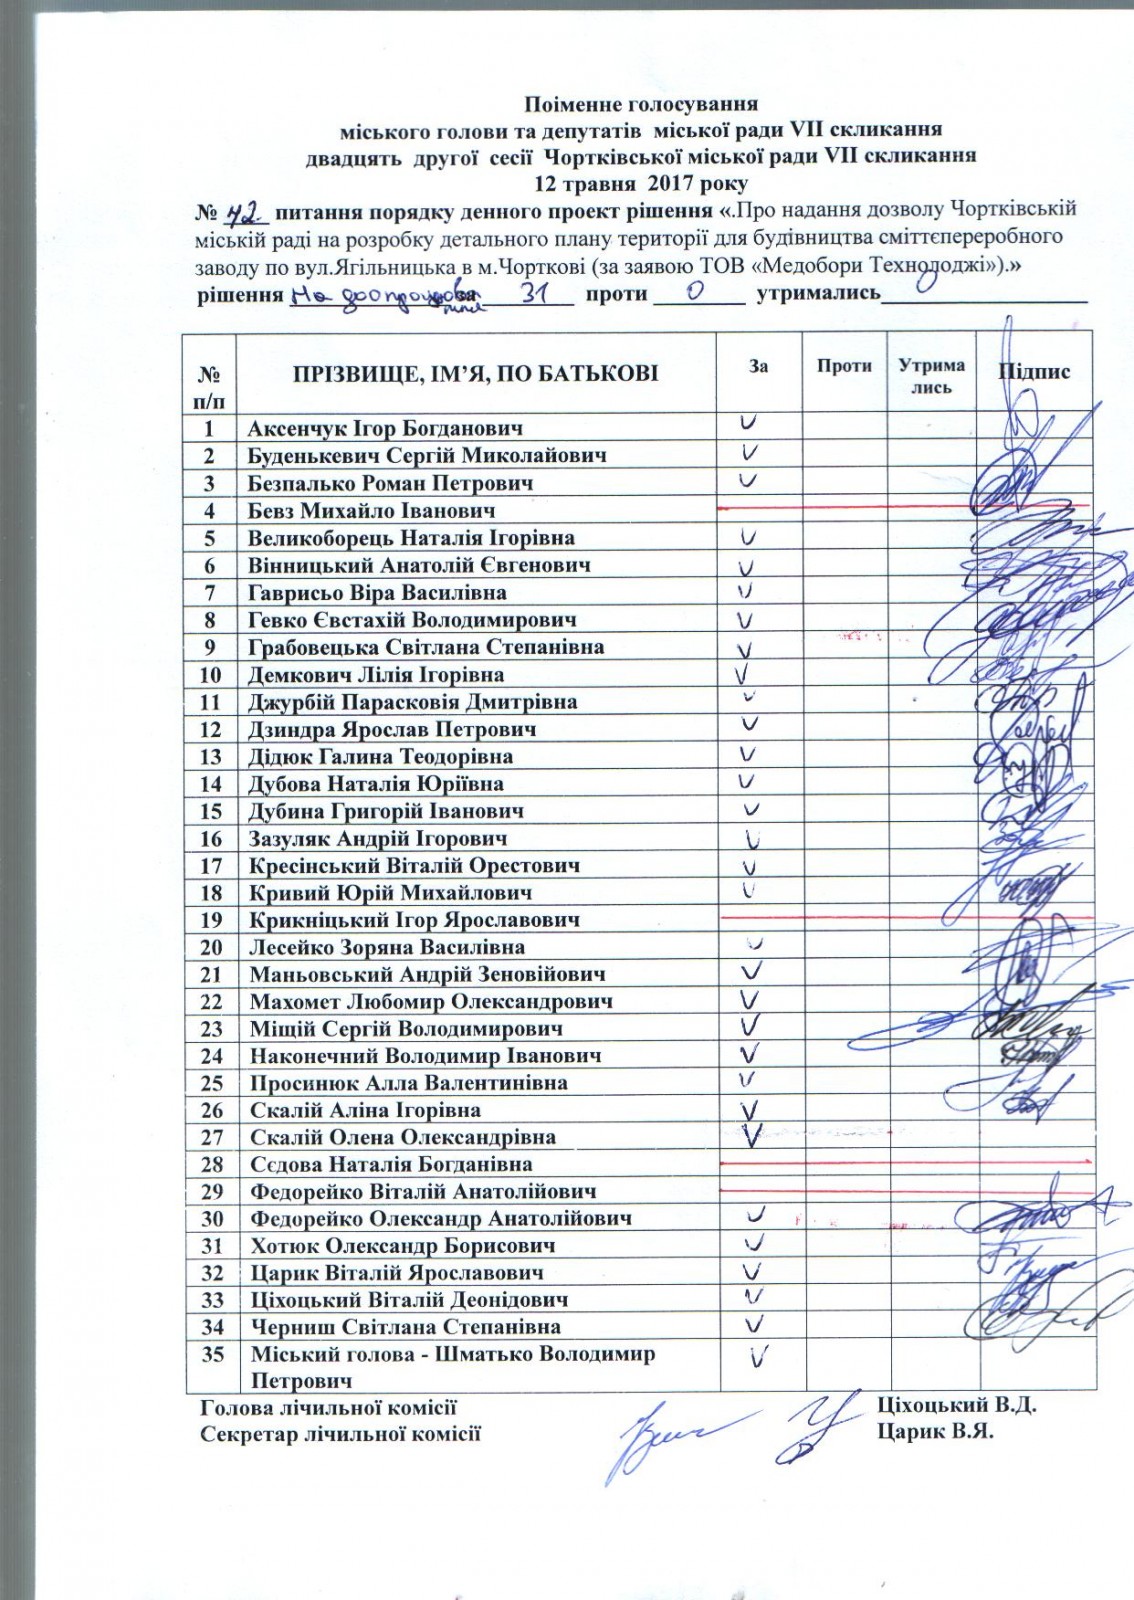 Поіменне голосування
міського голови та депутатів міської ради VII скликання
двадцять другої сесії Чортківської міської ради VII скликання
12 травня 2017 року
№ 42 питання порядку денного проект рішення «.Про надання дозволу Чортківській
міській раді на розробку детального плану території для будівництва сміттєпереробного
заводу по вул.Ягільницька в м.Чорткові (за заявою ТОВ «Медобори Технолоджі»).»
рішення На доопрацювання за 31 проти 0 утримались 0
№ п/п ПРІЗВИЩЕ, ІМ’Я, ПО БАТЬКОВІ За Проти Утрима лись Підпис
1 Аксенчук Ігор Богданович
2 Буденькевич Сергій Миколайович
3 Безпалько Роман Петрович
4 Бевз Михайло Іванович
5 Великоборець Наталія Ігорівна
6 Вінницький Анатолій Євгенович
7 Гаврисьо Віра Василівна
8 Гевко Євстахій Володимирович
9 Грабовецька Світлана Степанівна
10 Демкович Лілія Ігорівна
11 Джурбій Парасковія Дмитрівна
12 Дзиндра Ярослав Петрович
13 Дідюк Галина Теодорівна
14 Дубова Наталія Юріївна
15 Дубина Григорій Іванович
16 Зазуляк Андрій Ігорович
17 Кресінський Віталій Орестович
18 Кривий Юрій Михайлович
19 Крикніцький Ігор Ярославович
20 Лесейко Зоряна Василівна
21 Маньовський Андрій Зеновійович
22 Махомет Любомир Олександрович
23 Міщій Сергій Володимирович
24 Наконечний Володимир Іванович
25 Просинюк Алла Валентинівна
26 Скалій Аліна Ігорівна
27 Скалій Олена Олександрівна
28 Сєдова Наталія Богданівна
29 Федорейко Віталій Анатолійович
30 Федорейко Олександр Анатолійович
31 Хотюк Олександр Борисович
32 Царик Віталій Ярославович
33 Ціхоцький Віталій Деонідович
34 Черниш Світлана Степанівна
35 Міський голова - Шматько Володимир
Петрович
Голова лічильної комісії Ціхоцький В.Д.
Секретар лічильної комісії Царик В.Я.